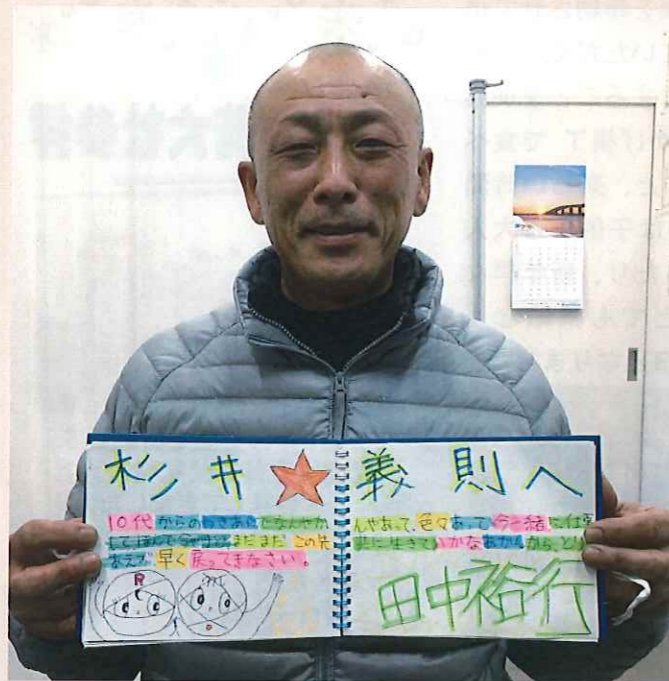 杉井★義則へ
10代からのつきあいでなんやかんやあって、色々あって今一緒に仕事
してほんで まだまだこの先共に生きていかなあかんから、とり
あえず早く戻ってきなさい。
R
田中裕行